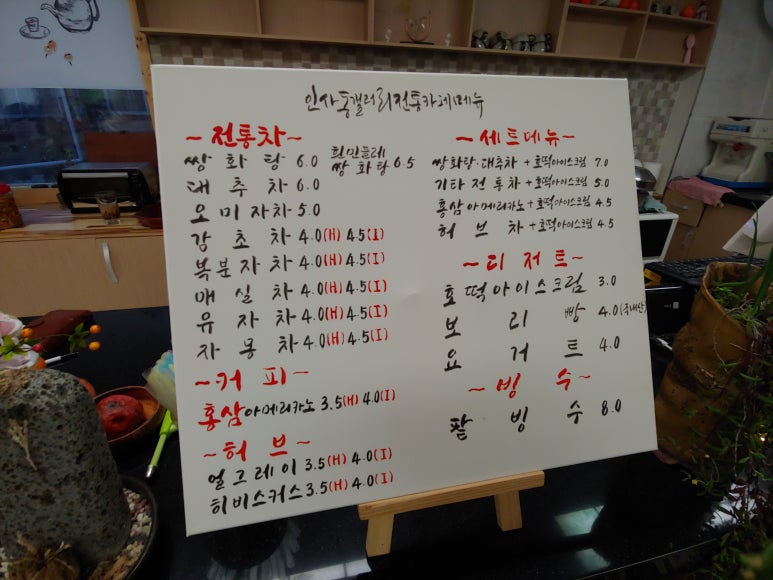 인사동갤러리전통카페메뉴
~전통차~
쌍화탕 6.0 흰민들레 쌍화탕 6.5
대추차 6.0
오미자차 5.0
감초차 4.0(H) 4.5(I)
복분자차 4.0(H) 4.5(I)
매실차 4.0(H) 4.5(I)
유자차 4.0(H) 4.5(I)
자몽차 4.0(H) 4.5(I)
~커피~
홍삼아메리카노 3.5(H) 4.0(I)
~허브~
얼그레이 3.5(H) 4.0(I)
히비스커스 3.5(H) 4.0(I)
~세트메뉴~
쌍화탕·대추차+호떡아이스크림 7.0
기타전통차+호떡아이스크림 5.0
홍삼아메리카노+호떡아이스크림 4.5
허브차+호떡아이스크림 4.5
~디저트~
호떡아이스크림 3.0
보리빵 4.0(국내산)
요거트 4.0
~빙수~
팥빙수 8.0